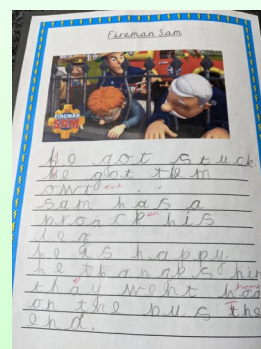 Fireman Sam
FIREMAN SAM
he got stuck.
he got them
owt out.
sam has a
broc en his
leg
he is happy.
he thanaks him
thay e went hoo home
on the bus the
end.